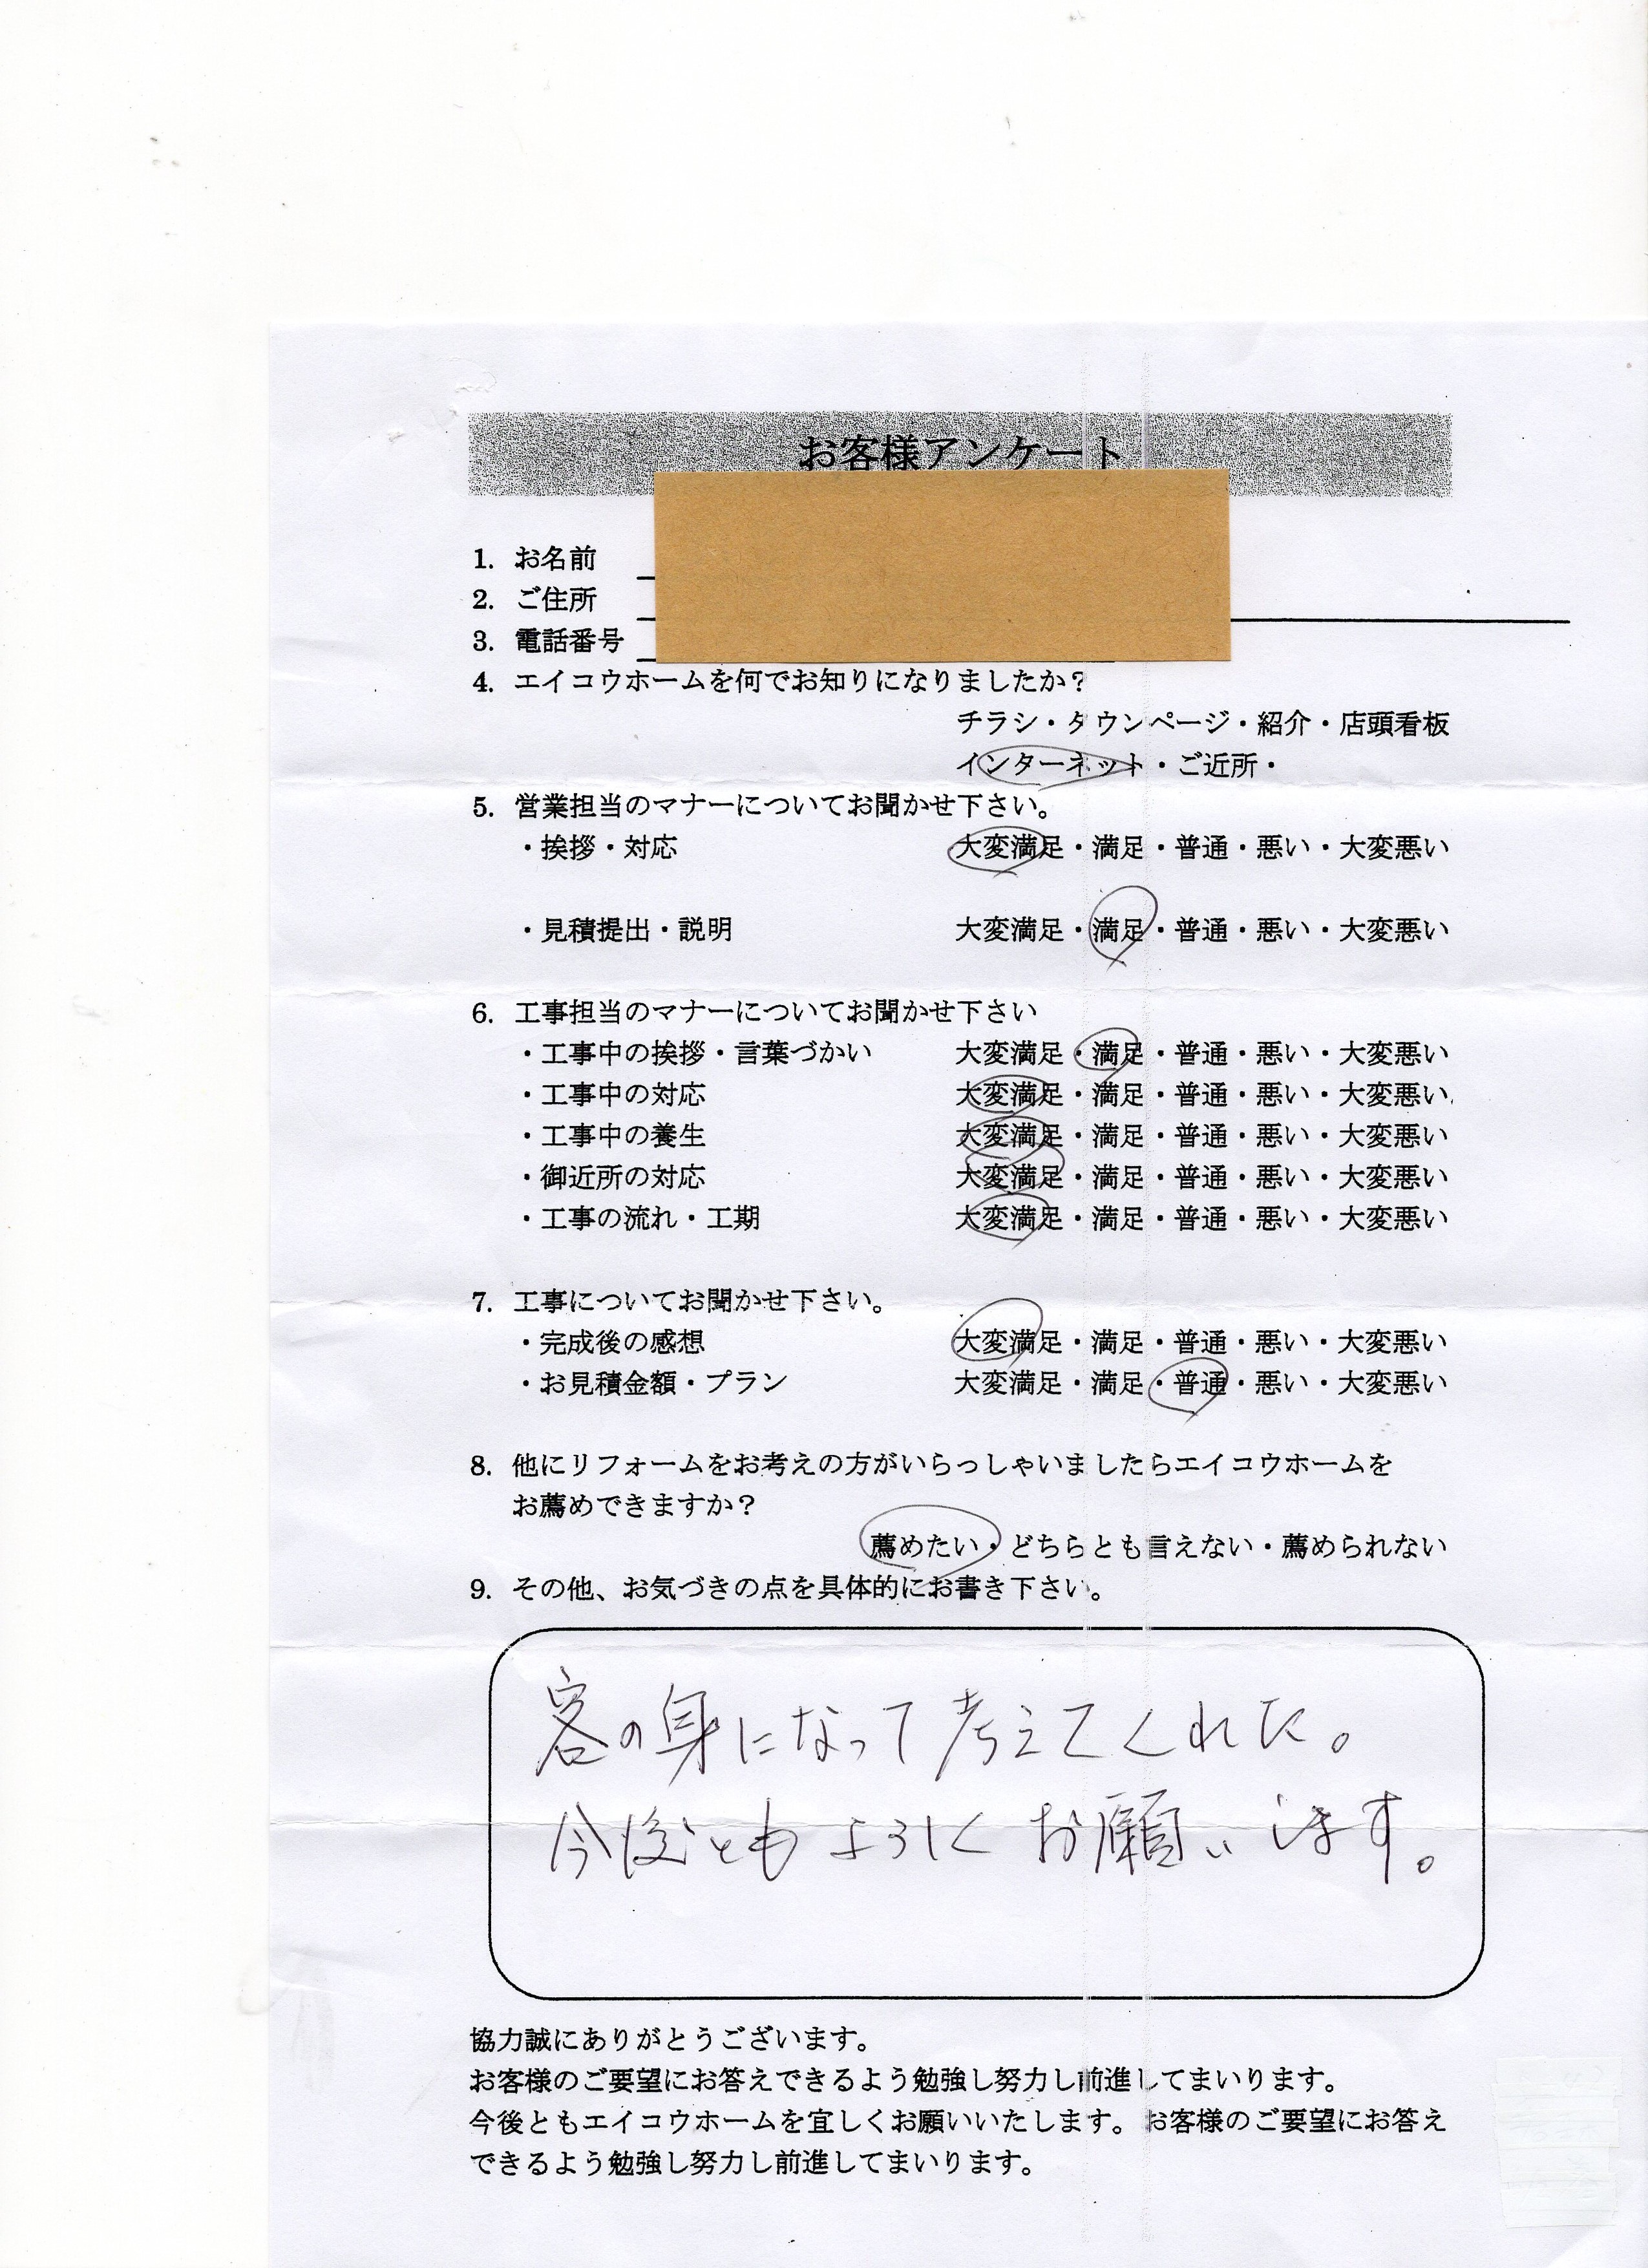 お客様アンケート
1. お名前
2. ご住所
3. 電話番号
4. エイコウホームを何でお知りになりましたか？
チラシ・タウンページ・紹介・店頭看板
インターネット・ご近所・
5. 営業担当のマナーについてお聞かせ下さい。
・挨拶・対応 大変満足・満足・普通・悪い・大変悪い
・見積提出・説明 大変満足・満足・普通・悪い・大変悪い
6. 工事担当のマナーについてお聞かせ下さい
・工事中の挨拶・言葉づかい 大変満足・満足・普通・悪い・大変悪い
・工事中の対応 大変満足・満足・普通・悪い・大変悪い
・工事中の養生 大変満足・満足・普通・悪い・大変悪い
・御近所の対応 大変満足・満足・普通・悪い・大変悪い
・工事の流れ・工期 大変満足・満足・普通・悪い・大変悪い
7. 工事についてお聞かせ下さい。
・完成後の感想 大変満足・満足・普通・悪い・大変悪い
・お見積金額・プラン 大変満足・満足・普通・悪い・大変悪い
8. 他にリフォームをお考えの方がいらっしゃいましたらエイコウホームを
お薦めできますか？
薦めたい・どちらとも言えない・薦められない
9. その他、お気づきの点を具体的にお書き下さい。
客の身になって考えてくれた。
今後ともよろしくお願いします。
協力誠にありがとうございます。
お客様のご要望にお答えできるよう勉強し努力し前進してまいります。
今後ともエイコウホームを宜しくお願いいたします。お客様のご要望にお答え
できるよう勉強し努力し前進してまいります。